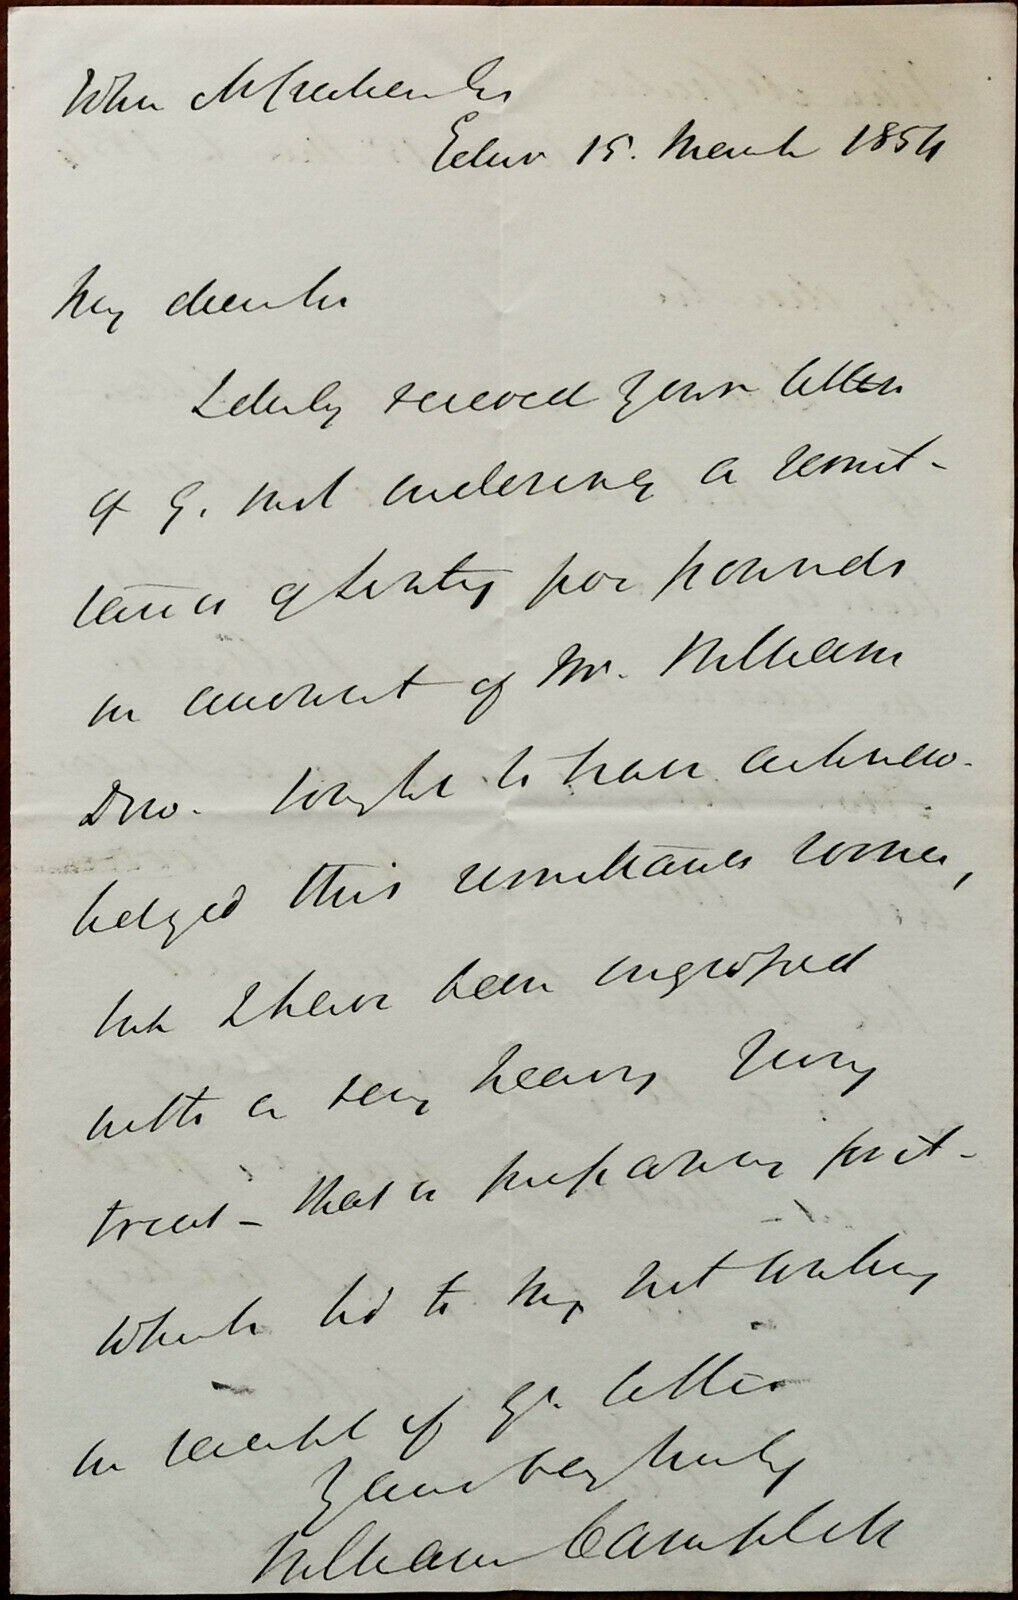 John McCracken Esr
Edinr 15. March 1854
My dear Sir
I duly received your letter
of 9. inst enclosing a remit-
tance of sixty four pounds
on account of Mr. William
Dow. I ought to have acknow-
ledged this remittance sooner,
but I have been engrossed
with a very heavy Jury
trial - that is preparing for it -
which led to my not writing
on receipt of yr. letter
Yours very truly
William Campbell